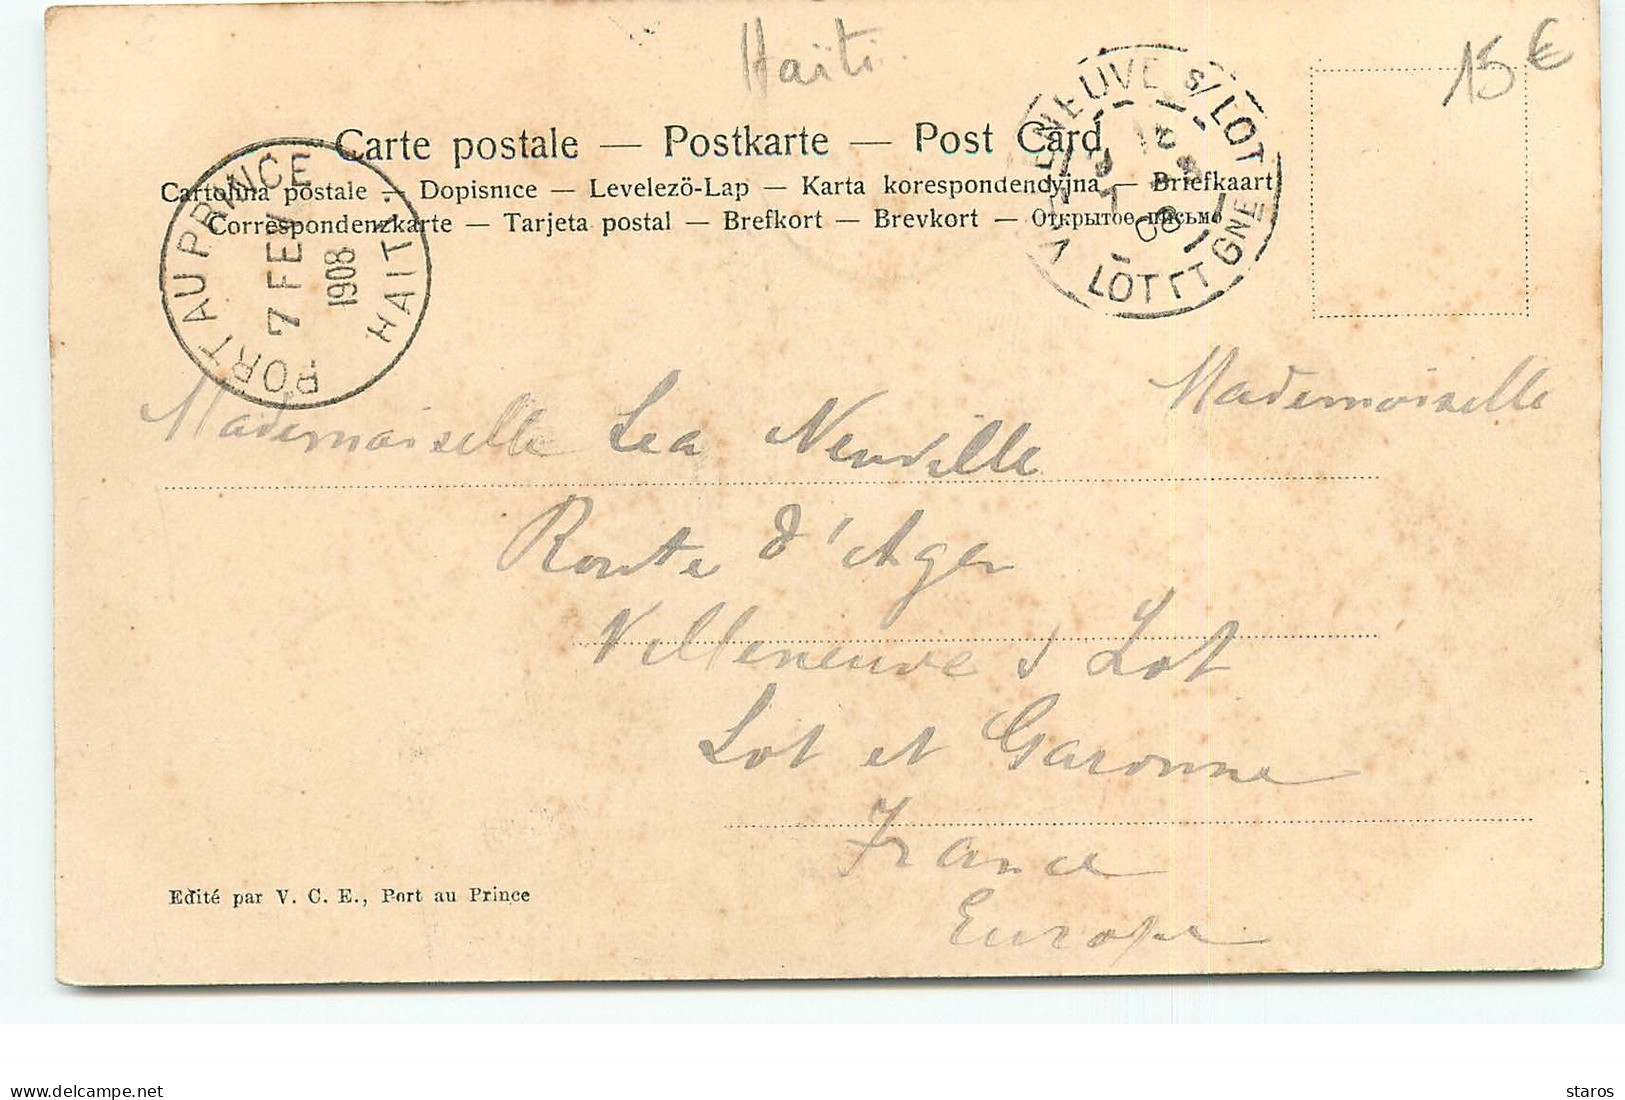 Haïti
15 €
Carte postale — Postkarte — Post Card
Cartolina postale — Dopisnice — Levelezö-Lap — Karta korespondencyjna — Briefkaart
Correspondenzkarte — Tarjeta postal — Brefkort — Brevkort — Открытое письмо
PORT AU PRINCE
7 FEV
1908
HAITI
VILLENEUVE S/ LOT
08
LOT ET GNE
Mademoiselle
Mademoiselle Lea Neuville
Route d'Agen
Villeneuve s Lot
Lot et Garonne
France
Europe
Edité par V. C. E., Port au Prince
delcampe.net
staros